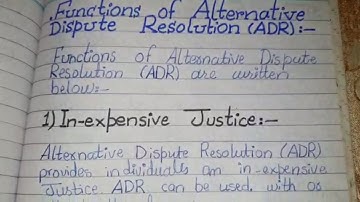 Functions of Alternative
Dispute Resolution (ADR):-
Functions of Alternative Dispute
Resolution (ADR) are written
below:-
1) In-expensive Justice:-
Alternative Dispute Resolution (ADR)
provides individuals an in-expensive
Justice. ADR can be used with os